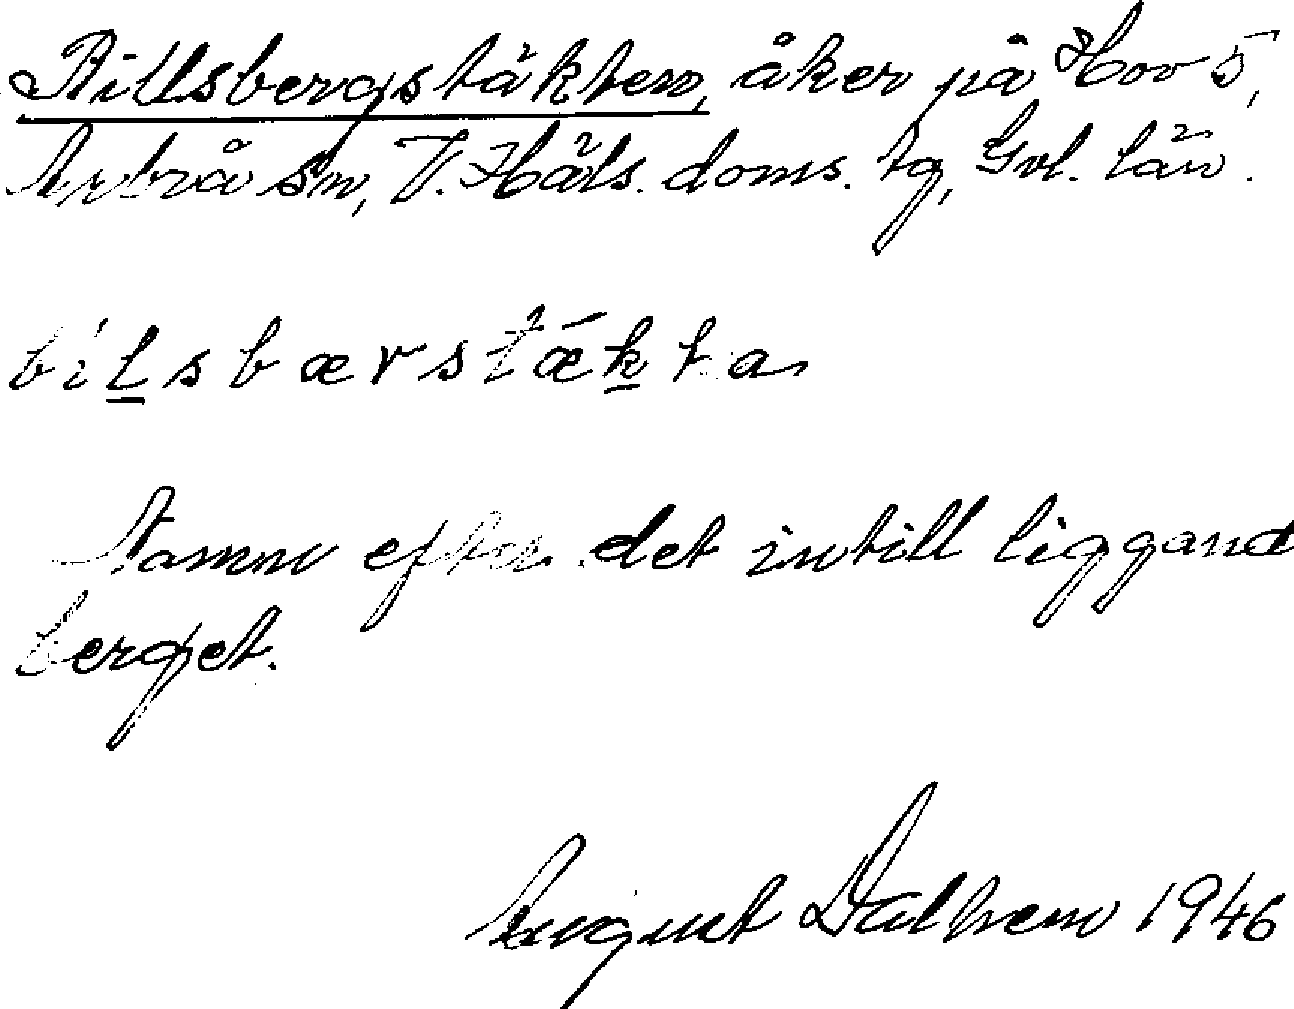 Billsbergstäkten, åker på Hov 5,
Arbrå sn, V. Häls. doms. tg, Gvl. län.
bílsbærstǽkta
Namn efter det intill liggand
berget.
August Dalhem 1946